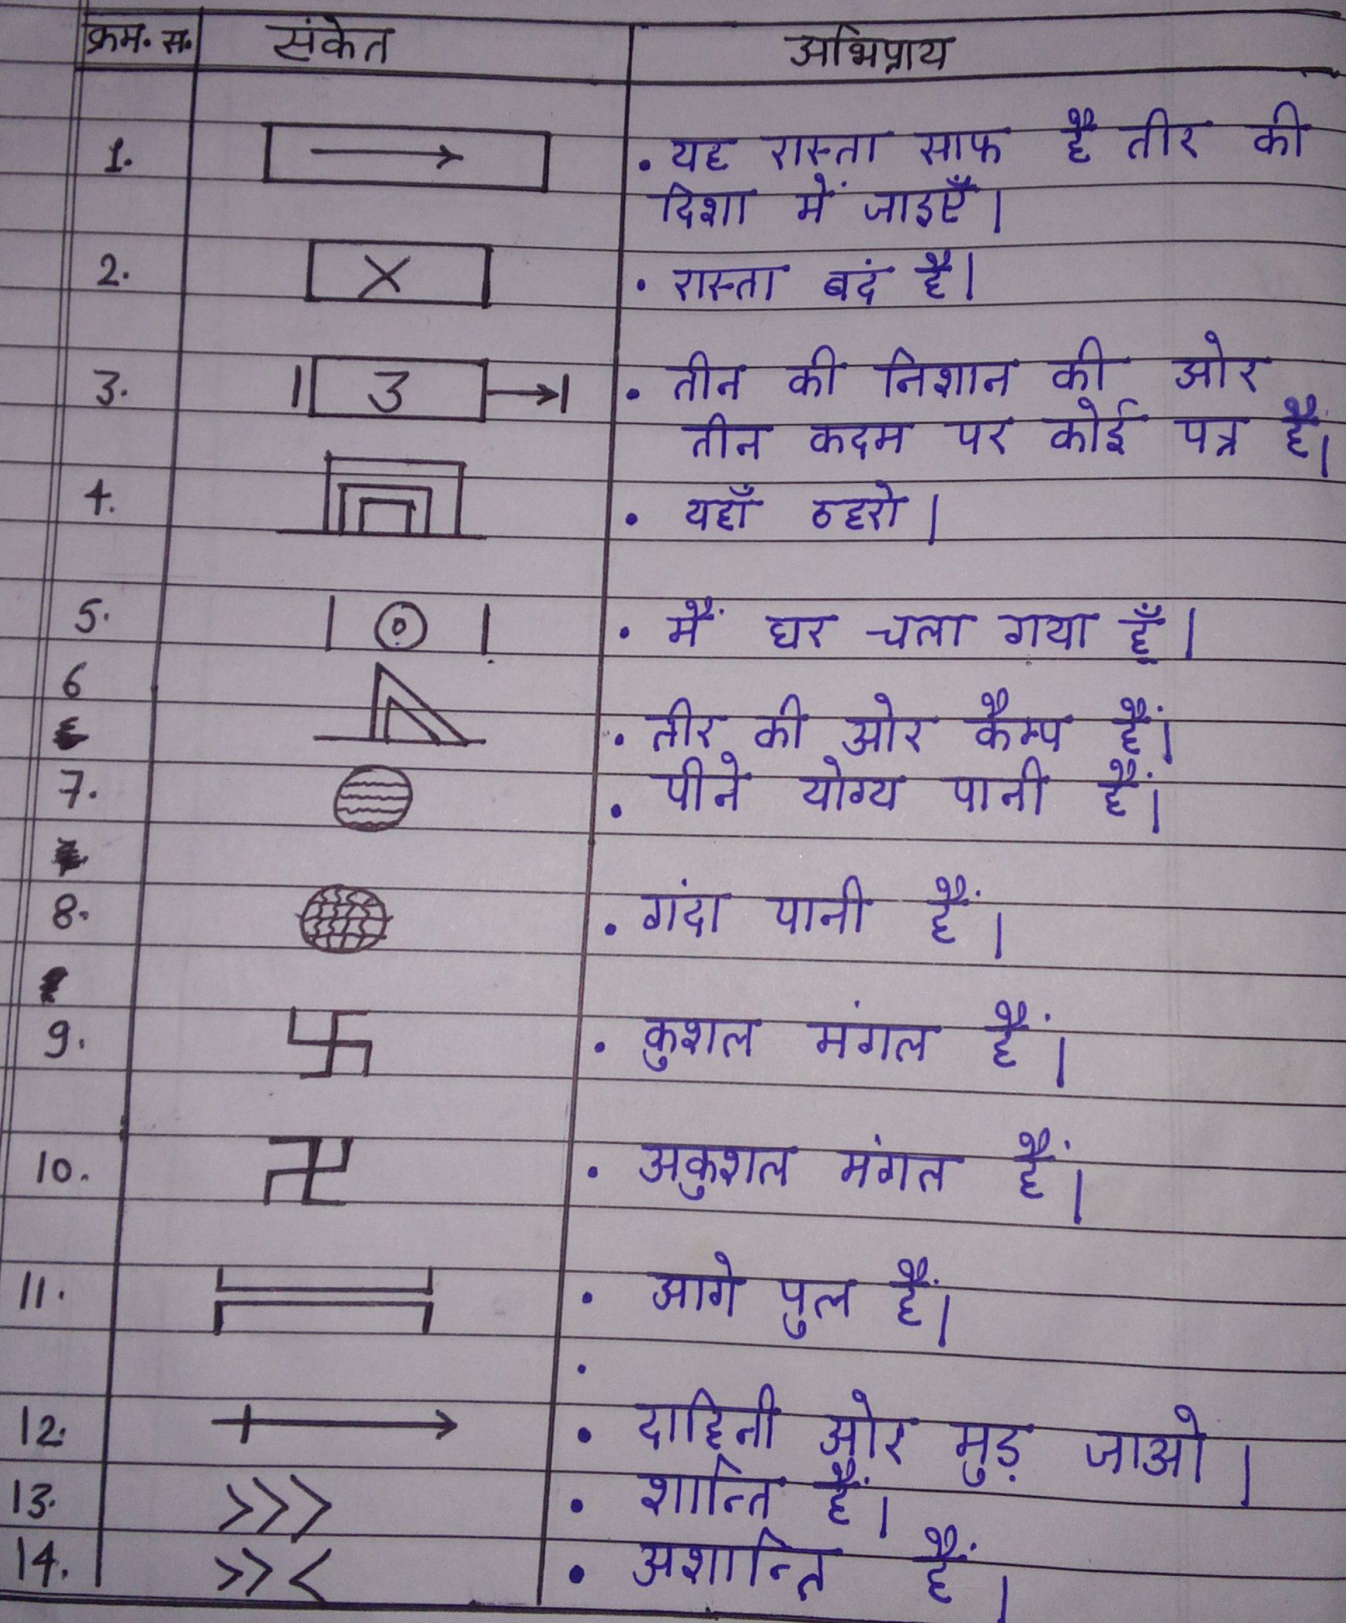 क्रम. स. संकेत अभिप्राय
1. . यह रास्ता साफ है तीर की
दिशा में जाइएँ।
2. X . रास्ता बदं है।
3. 3 . तीन की निशान की ओर
तीन कदम पर कोई पत्र हैं।
4. . यहाँ ठहरो।
5. . मैं घर चला गया हूँ।
6
. तीर की ओर कैम्प हैं।
7. . पीने योग्य पानी हैं।
8. . गंदा पानी हैं।
9. . कुशल मंगल हैं।
10. . अकुशल मंगल हैं।
11. . आगे पुल हैं।
.
12. . दाहिनी ओर मुड़ जाओ।
13. . शान्ति हैं।
14. . अशान्ति हैं।